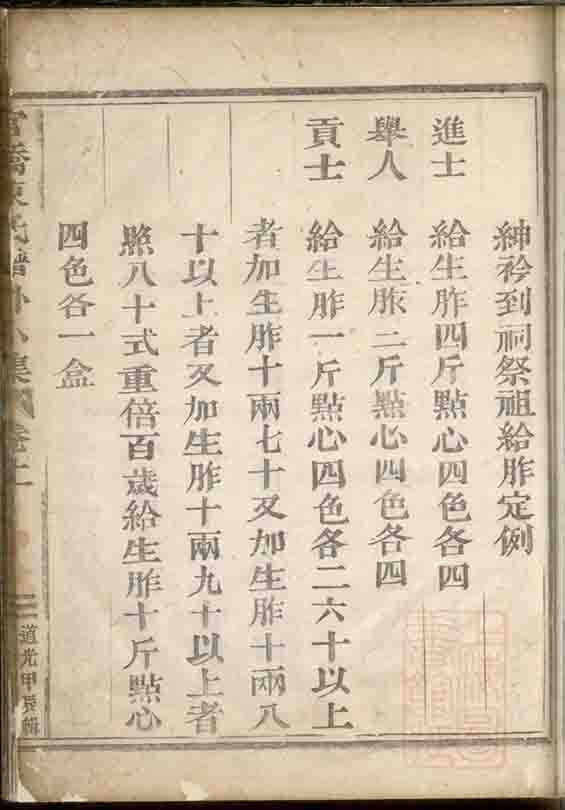 紳衿到祠祭祖給胙定例
進士 給生胙四斤點心四色各四
舉人 給生胙二斤點心四色各四
貢士 給生胙一斤點心四色各二六十以上
者加生胙十兩七十又加生胙十兩八
十以上者又加生胙十兩九十以上者
照八十式重倍百歲給生胙十斤點心
四色各一盒
氏譜外集卷上
道光甲辰輯